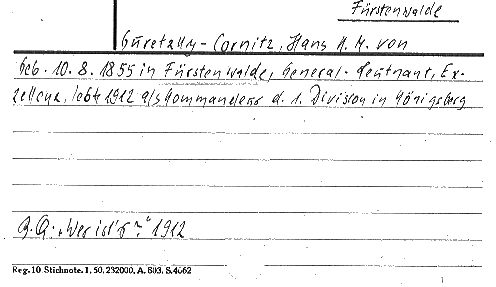 Fürstenwalde
Guretzky-Cornitz, Hans H. M. von
Geb. 10. 8. 1855 in Fürstenwalde, General-Leutnant, Ex-
zellenz, lebte 1912 als Kommandeur d. 1. Division in Königsberg
B. Q.: „Wer ist's?“ 1912
Reg. 10 Stichnote. 1, 50, 232000, A. 803. S. 4662